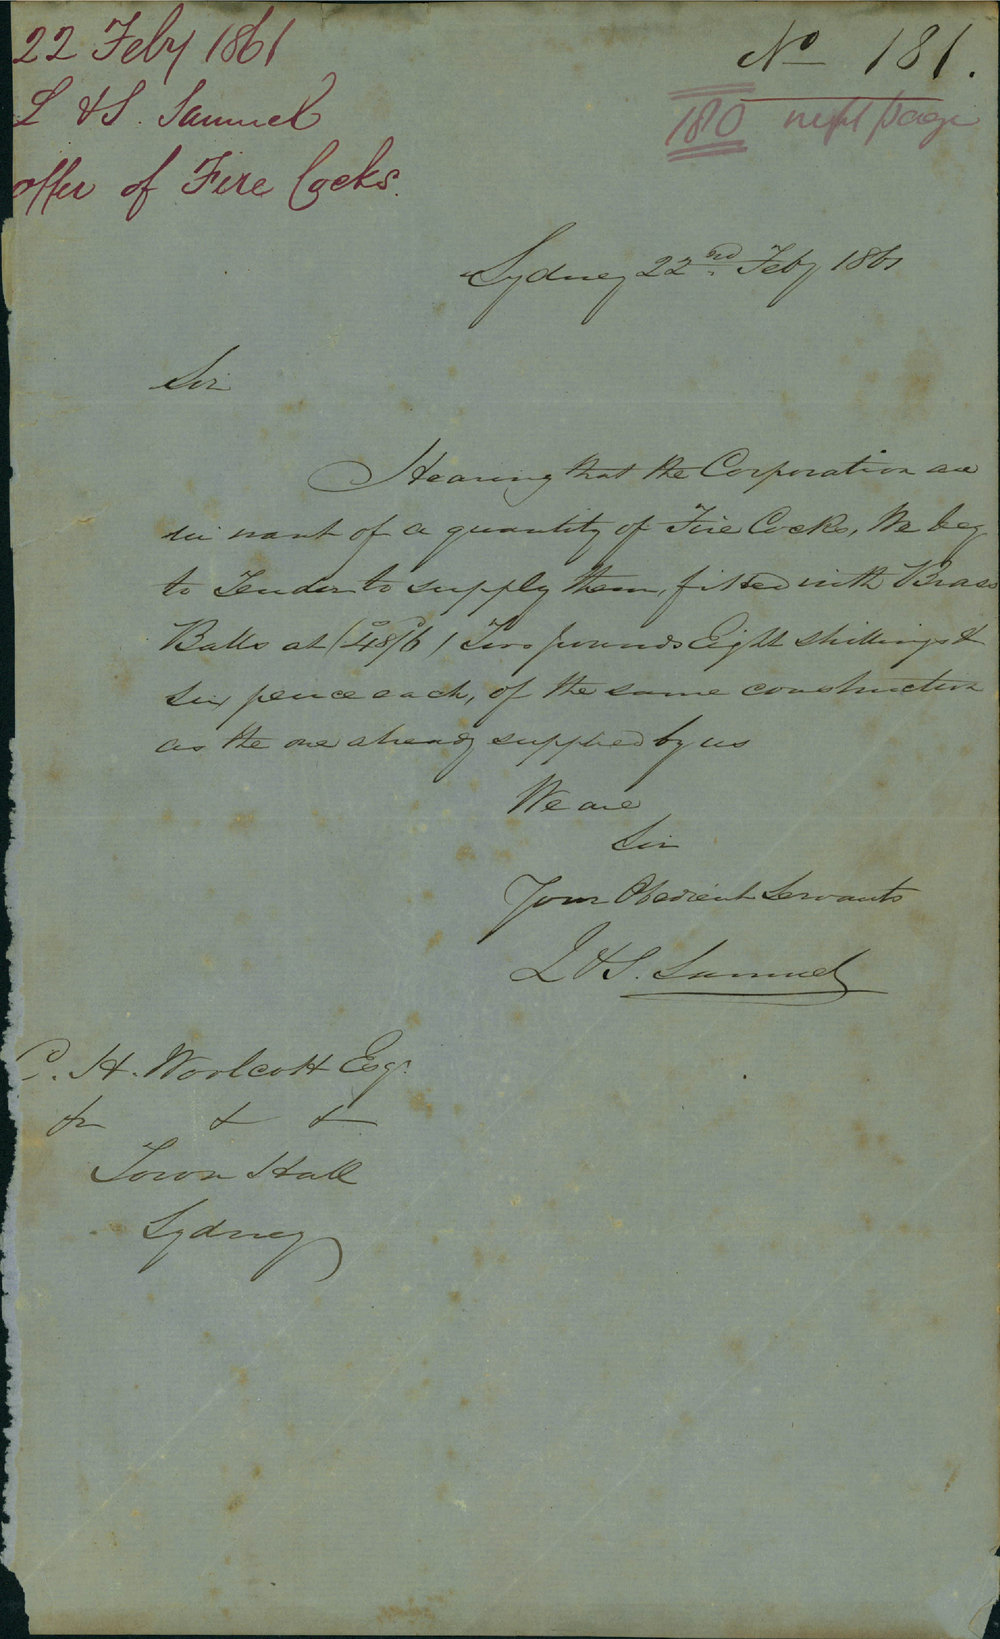 22 Feby 1861
L & S. Samuel
offer of Fire Cocks.
No 181.
180 next page
Sydney 22nd Feby 1861
Sir
Hearing that the Corporation are
in want of a quantity of Fire Cocks, We beg
to Tender to supply them, fitted with Brass
Balls at (48/6) Two pounds Eight shillings &
six pence each, of the same construction
as the one already supplied by us
We are
Sir
Your Obedient Servants
L & S. Samuel
C. H. Woolcott Esqr.
& & &
Town Hall
Sydney